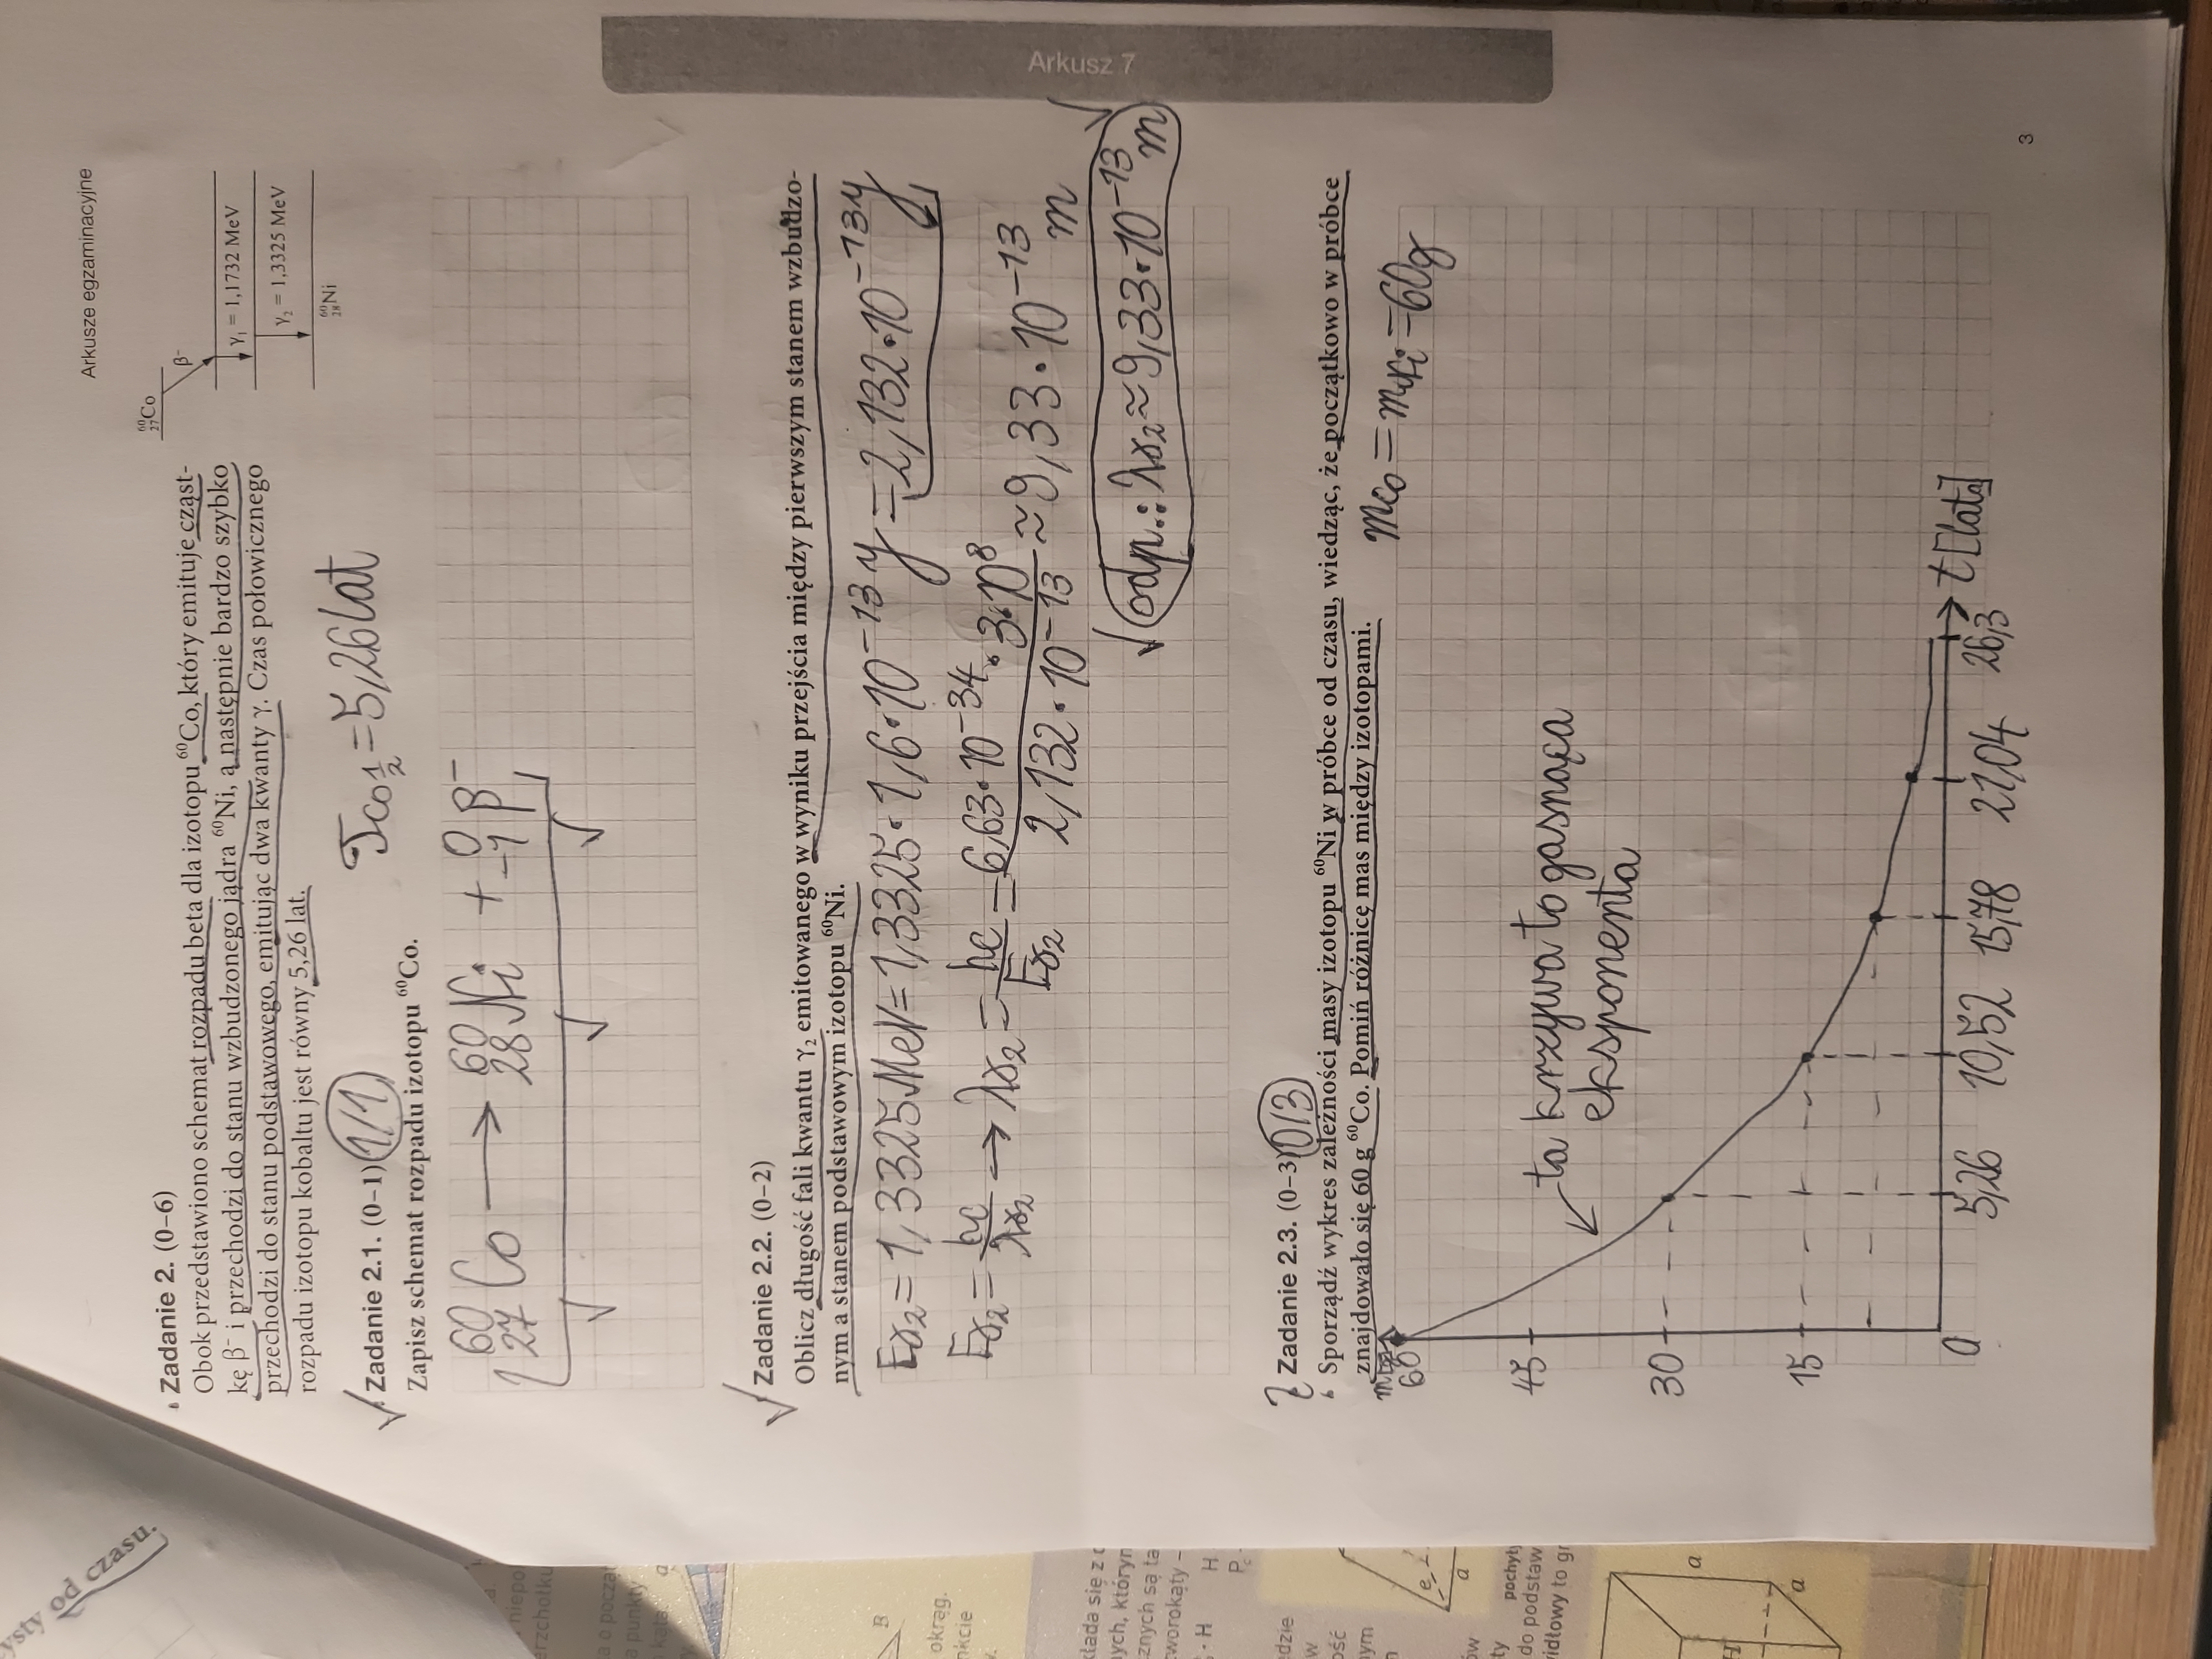 Arkusze egzaminacyjne
Zadanie 2. (0–6)
Obok przedstawiono schemat rozpadu beta dla izotopu ⁶⁰Co, który emituje cząst-
kę β⁻ i przechodzi do stanu wzbudzonego jądra ⁶⁰Ni, a następnie bardzo szybko
przechodzi do stanu podstawowego, emitując dwa kwanty γ. Czas połowicznego
rozpadu izotopu kobaltu jest równy 5,26 lat.
⁶⁰₂₇Co
β⁻
γ₁ = 1,1732 MeV
γ₂ = 1,3325 MeV
⁶⁰₂₈Ni
Tco 1/2 = 5,26 lat
Zadanie 2.1. (0–1) 1/1
Zapisz schemat rozpadu izotopu ⁶⁰Co.
⁶⁰₂₇Co → ⁶⁰₂₈Ni + ⁰₋₁β⁻
Zadanie 2.2. (0–2)
Oblicz długość fali kwantu γ₂ emitowanego w wyniku przejścia między pierwszym stanem wzbudzo-
nym a stanem podstawowym izotopu ⁶⁰Ni.
Eγ₂ = 1,3325 MeV = 1,3325 · 1,6 · 10⁻¹³ J = 2,132 · 10⁻¹³ J
Eγ₂ = hc/λγ₂ → λγ₂ = hc/Eγ₂ = 6,63 · 10⁻³⁴ · 3 · 10⁸ / 2,132 · 10⁻¹³ ≈ 9,33 · 10⁻¹³ m
odp.: λγ₂ ≈ 9,33 · 10⁻¹³ m
Zadanie 2.3. (0–3) 0/3
Sporządź wykres zależności masy izotopu ⁶⁰Ni w próbce od czasu, wiedząc, że początkowo w próbce
znajdowało się 60 g ⁶⁰Co. Pomiń różnicę mas między izotopami.
mco = mNi = 60g
60
45
30
15
0
ta krzywa to gasnąca
eksponenta
5,26 10,52 15,78 21,04 26,3 t [lata]
Arkusz 7
3
od czasu.
okrąg.
B
a
H